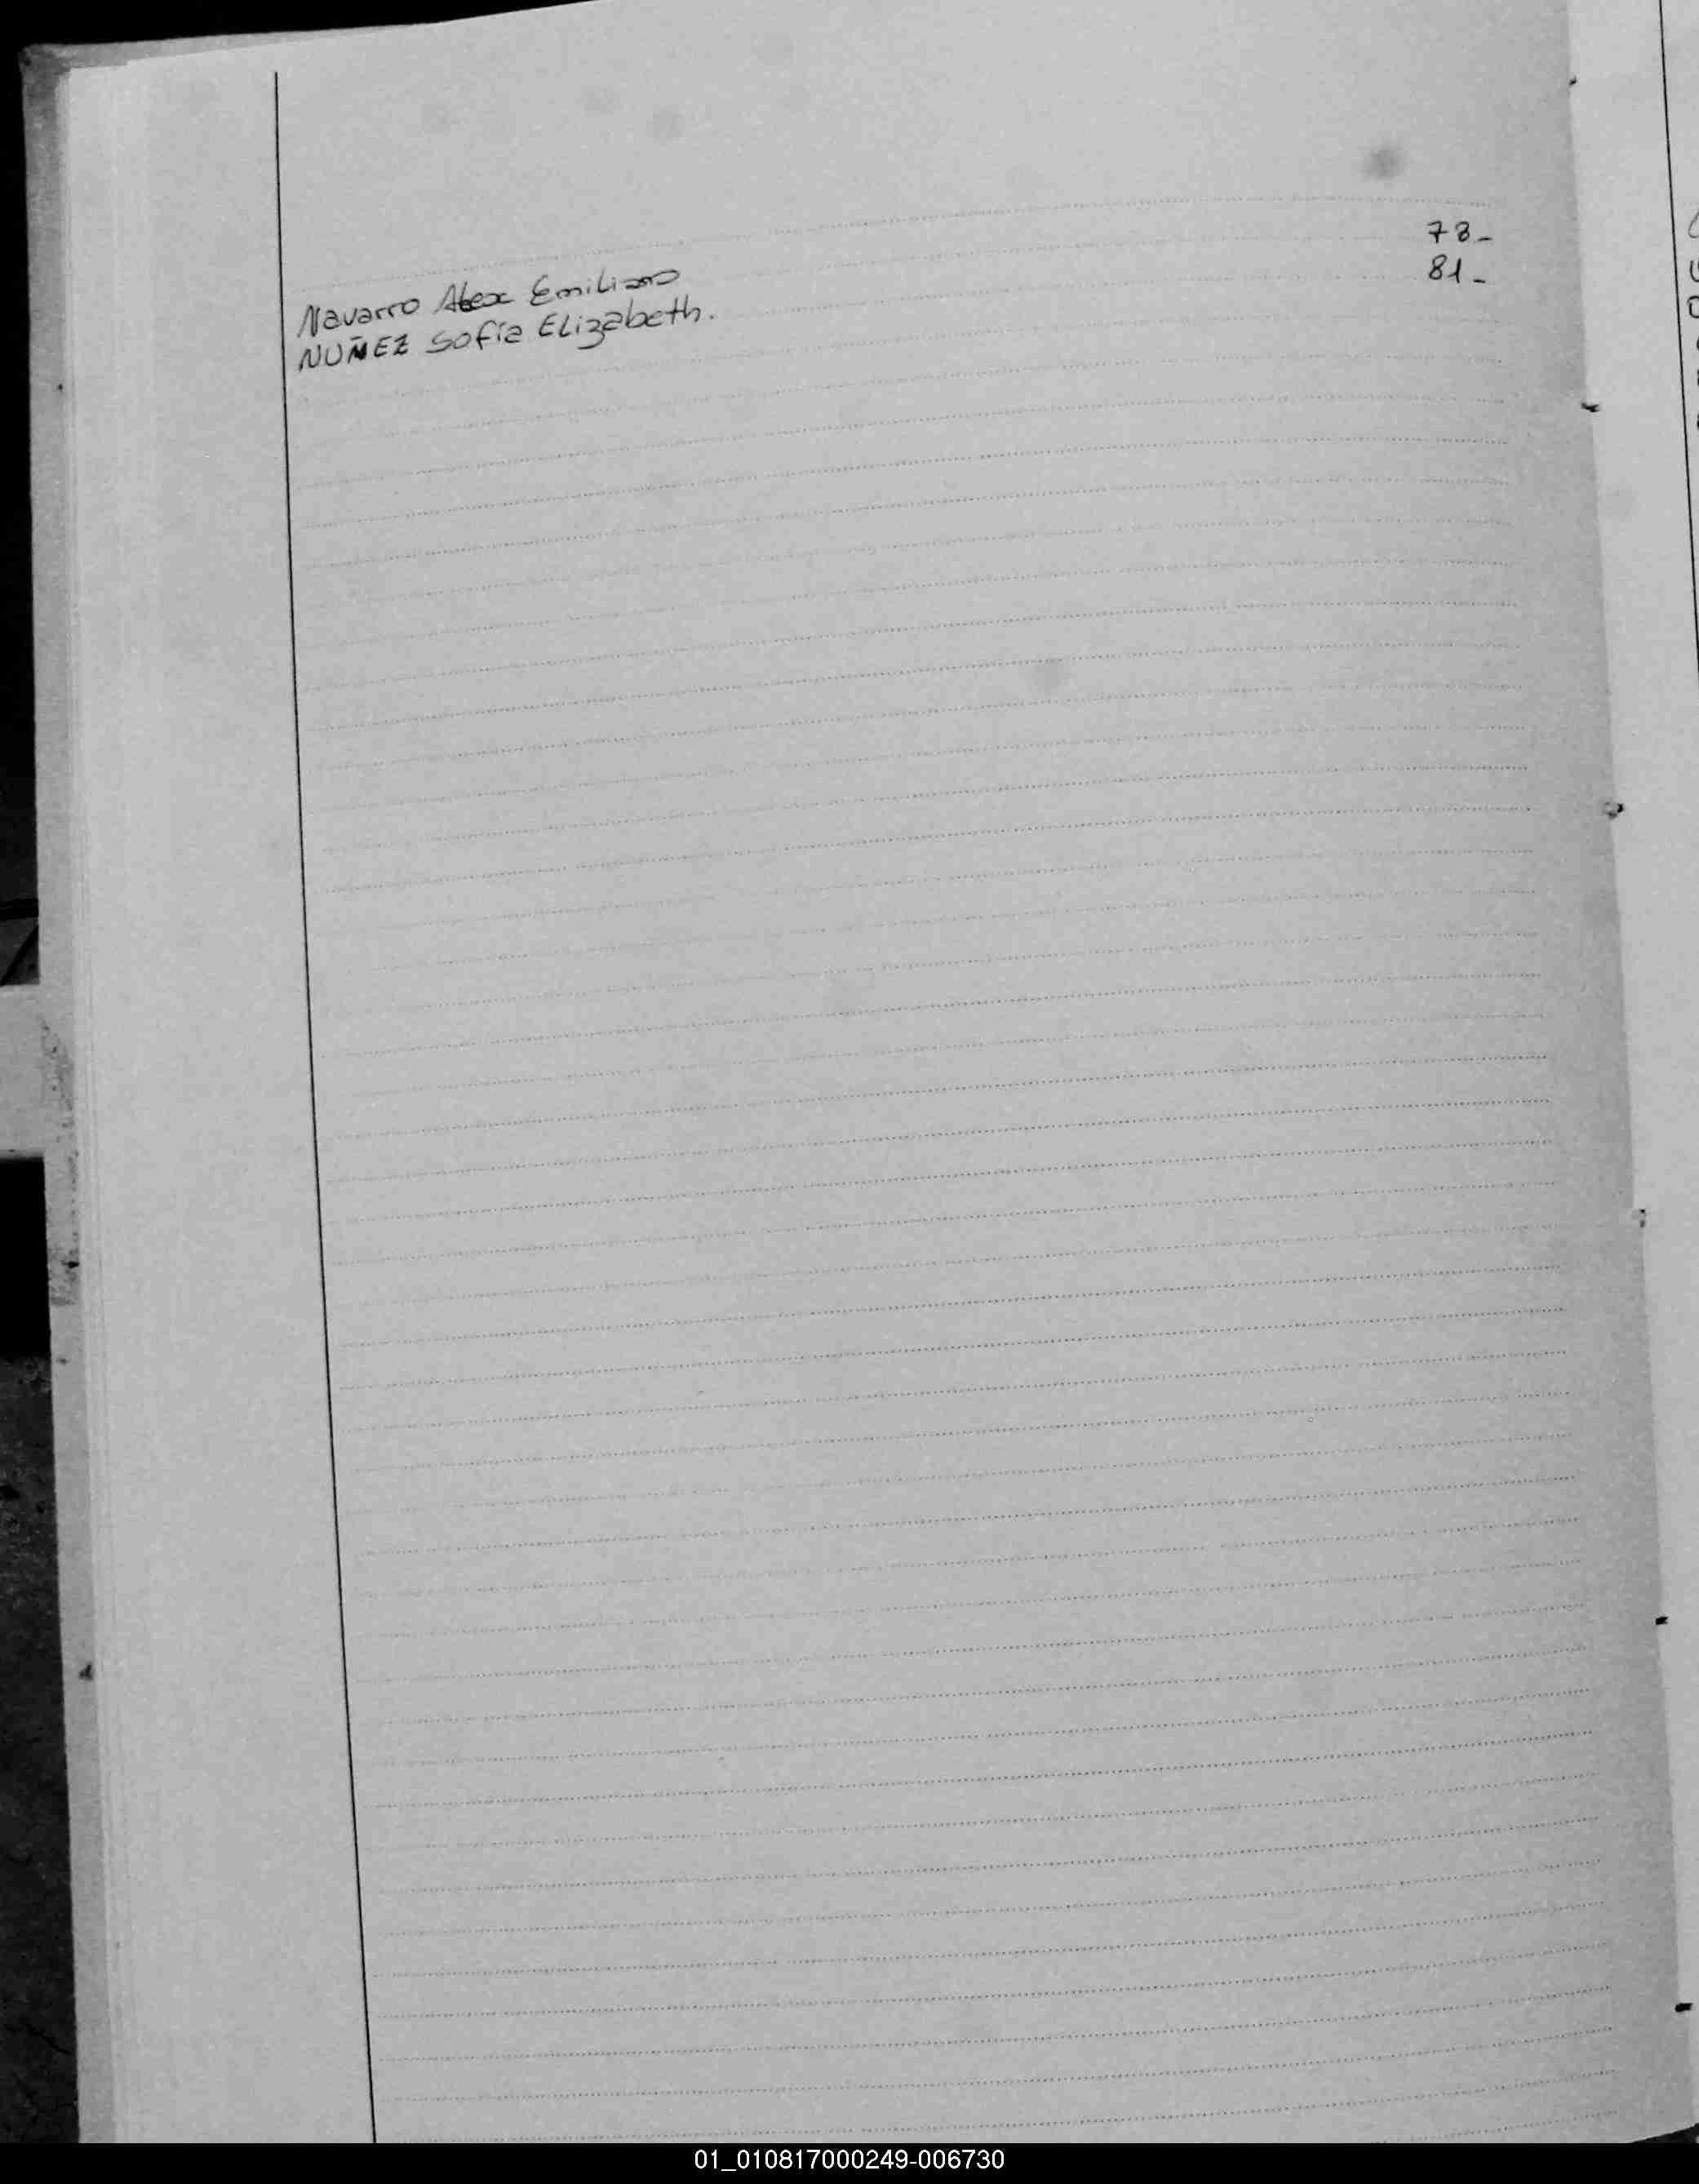 Navarro Alex Emiliano 78-
NUÑEZ Sofía Elizabeth. 81-
01_010817000249-006730